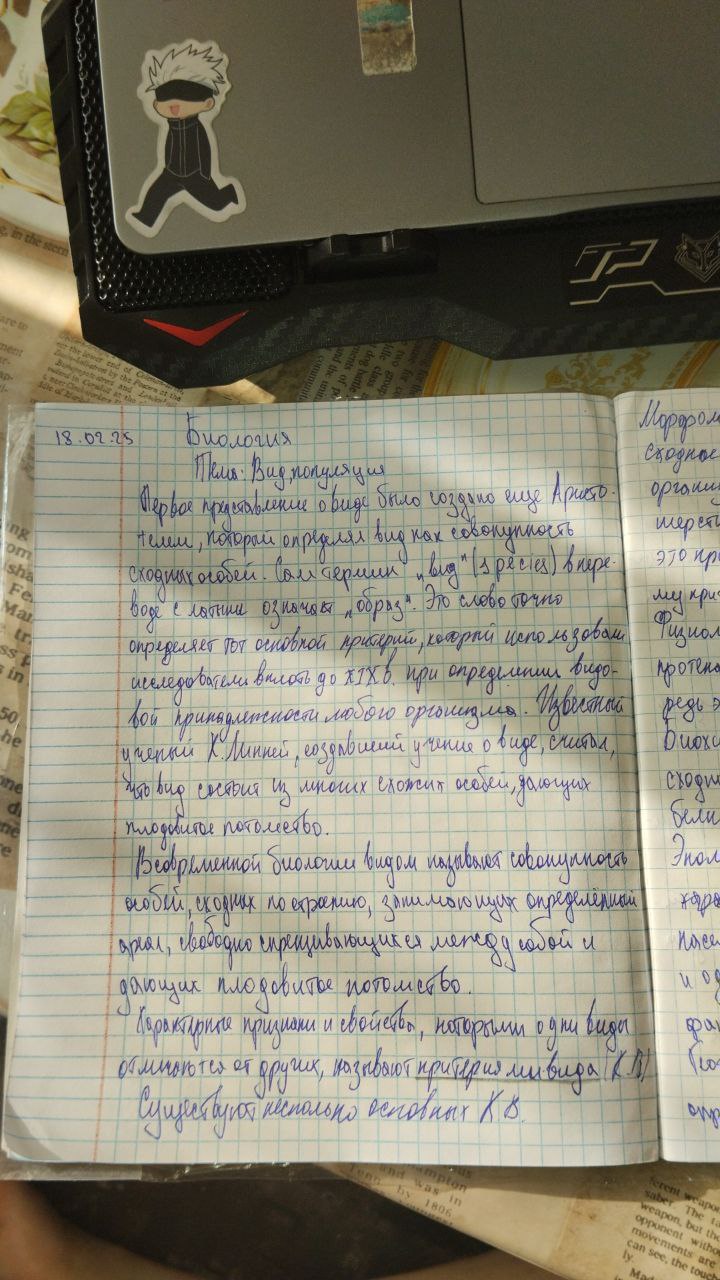 18.02.25 Биология
Тема: Вид, популяция
Первое представление о виде было создано еще Аристо-
телем, который определял вид как совокупность
сходных особей. Сам термин „вид" (species) в пере-
воде с латыни означает „образ". Это слово точно
определяет тот основной критерий, который использовали
исследователи вплоть до XIX в. при определении видо-
вой принадлежности любого организма. Известный
ученый К. Линней, создавший учение о виде, считал,
что вид состоит из многих схожих особей, дающих
плодовитое потомство.
В современной биологии видом называют совокупность
особей, сходных по строению, занимающих определённый
ареал, свободно скрещивающихся между собой и
дающих плодовитое потомство.
Характерные признаки и свойства, которыми одни виды
отличаются от других, называют критериями вида (К.В)
Существуют несколько основных К.В.
Морфол
сходное
органи
шерсти
это пр
му кри
Физиол
протека
редь э
Биохи
сходны
белк
Экол
хара
насе
и од
фак
Гео
опр
in the stern
by 1806
and was in
ferent weapo
saber. The
weapon, but
opponent witho
movements are
can see, the touc
ly.